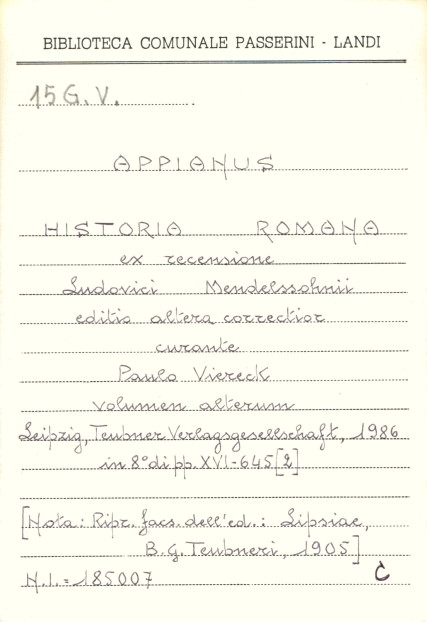 BIBLIOTECA COMUNALE PASSERINI - LANDI
15 G. V.
APPIANUS
HISTORIA ROMANA
ex recensione
Ludovici Mendelssohnii
editio altera correctior
curante
Paulo Viereck
volumen alterum
Leipzig, Teubner Verlagsgesellschaft, 1986
in 8° di pp. XVI-645 [2]
[Nota: Ripr. facs. dell'ed.: Lipsiae,
B. G. Teubneri, 1905]
N.I. = 185007 C